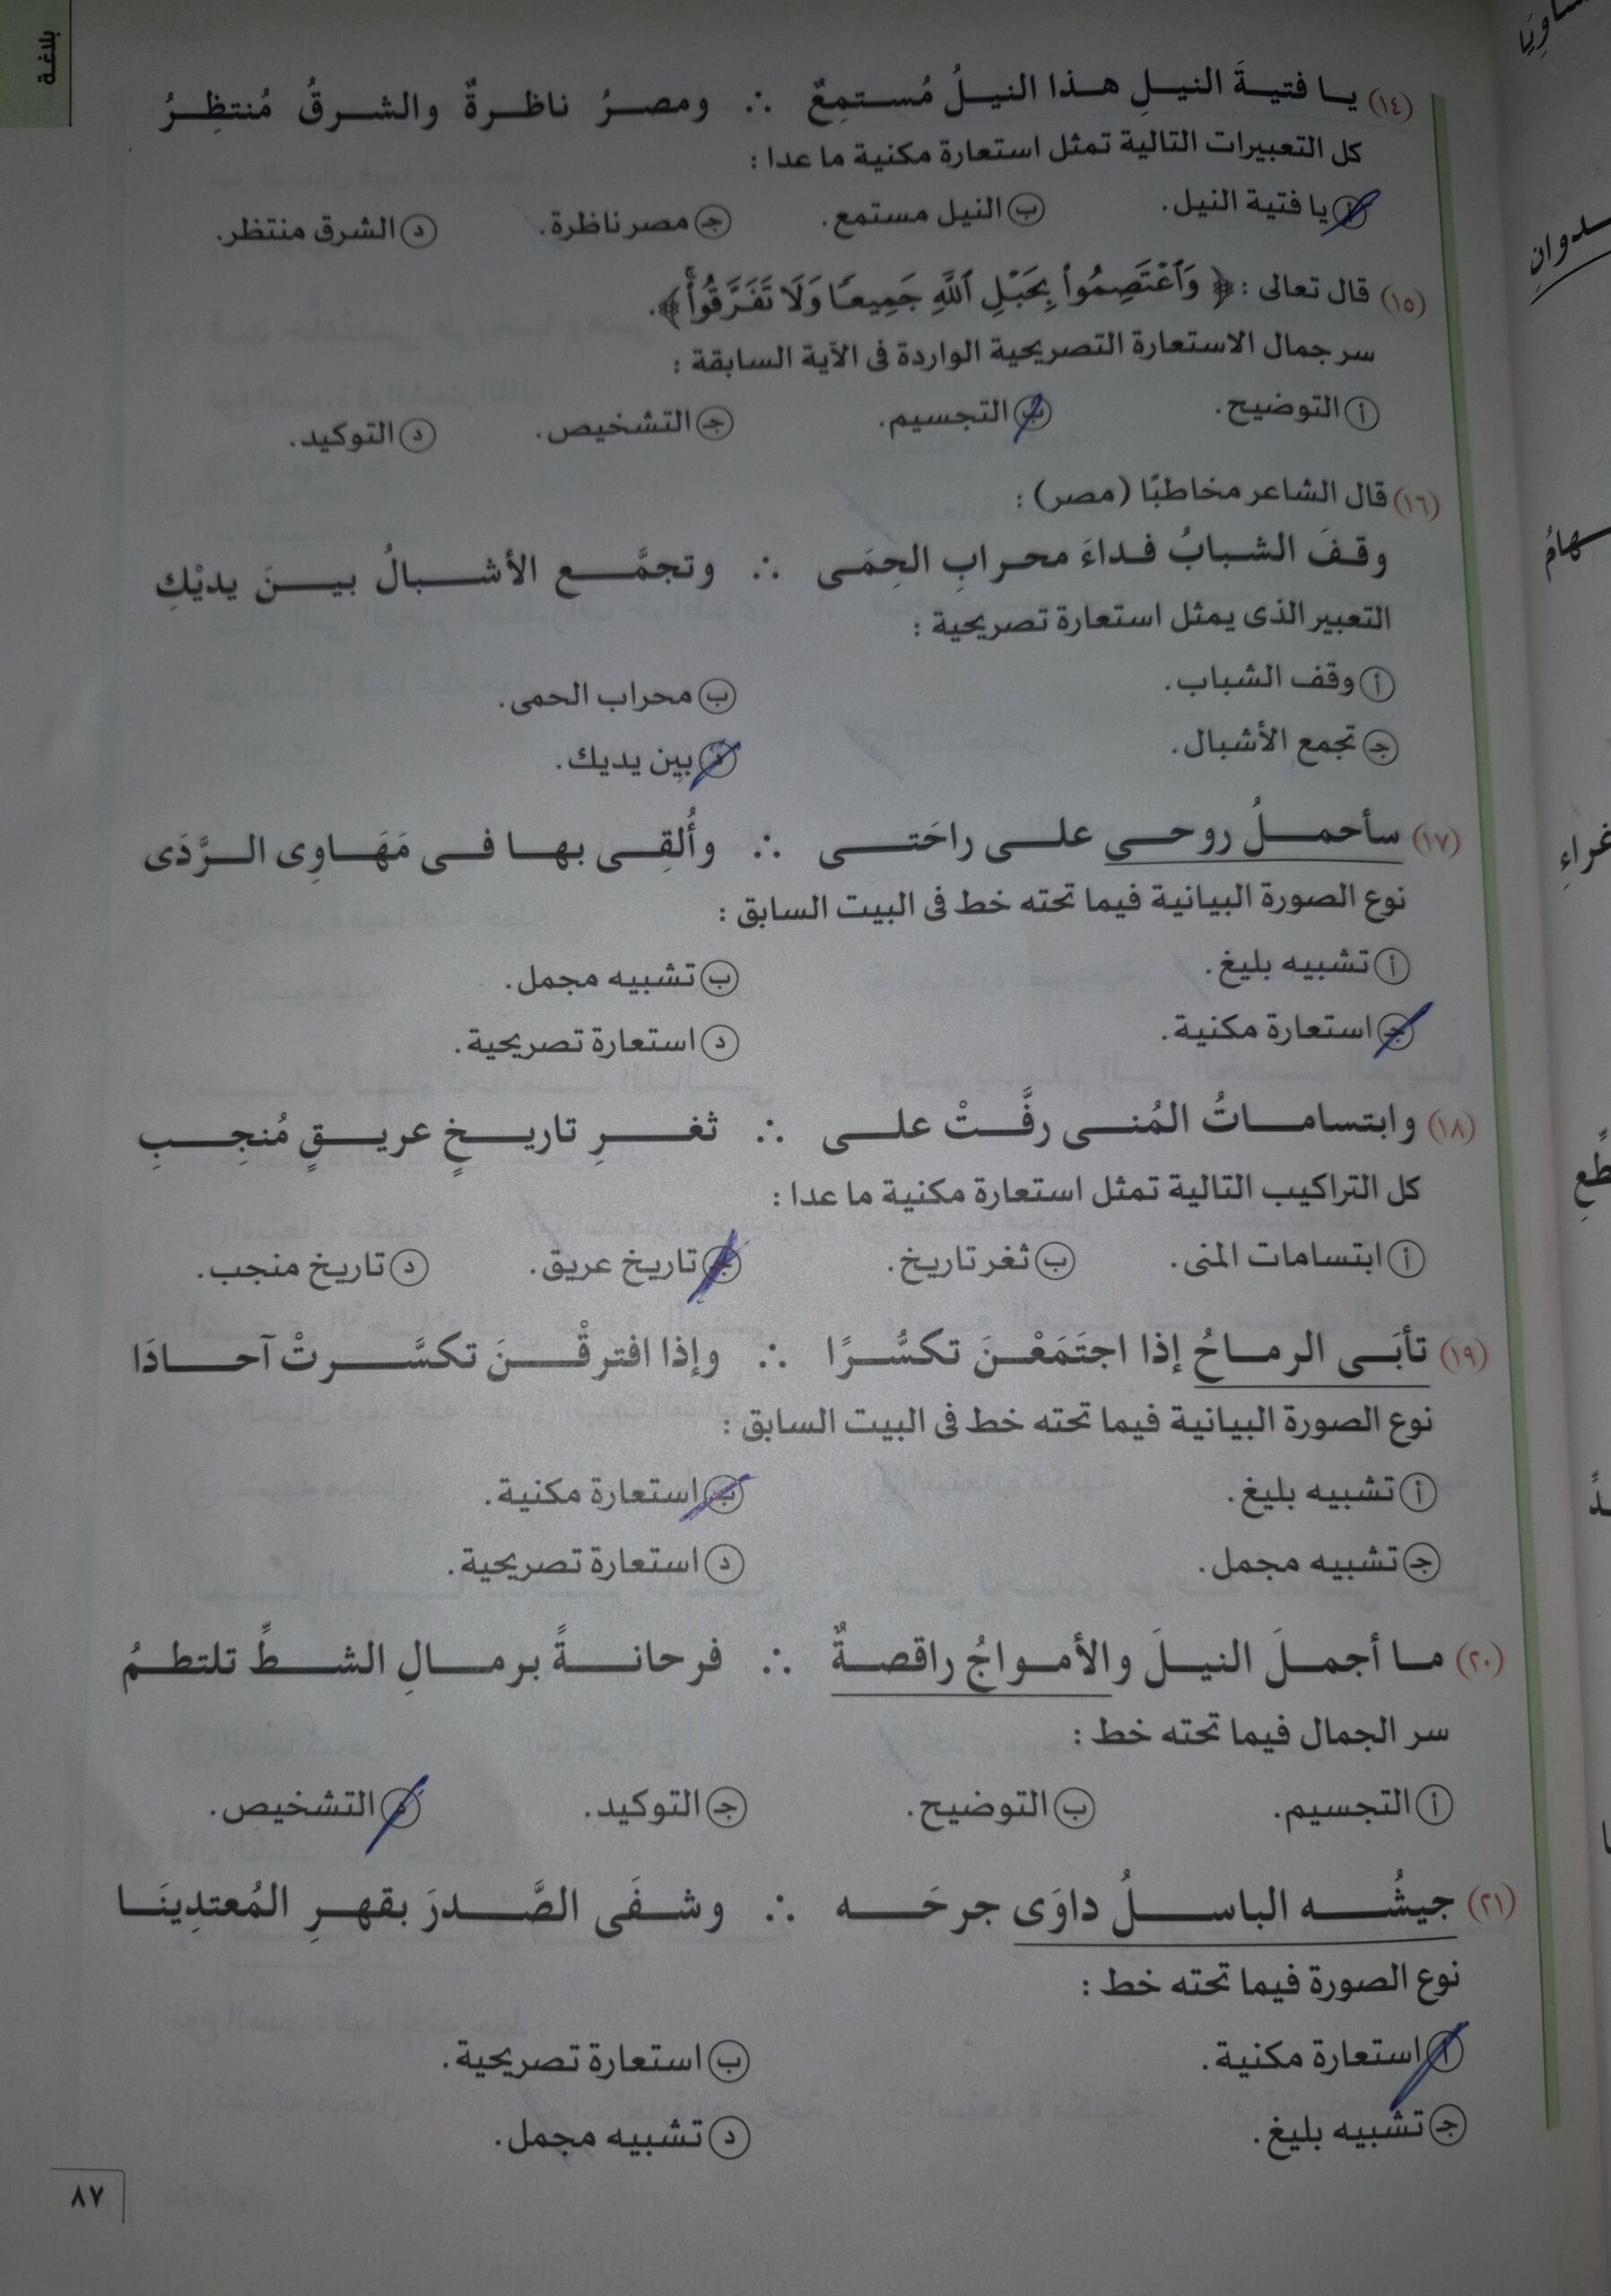 بلاغة
(١٤) يا فتيةَ النيلِ هذا النيلُ مُستمِعٌ ∴ ومصرُ ناظرةٌ والشرقُ مُنتظِرُ
كل التعبيرات التالية تمثل استعارة مكنية ما عدا :
أ يا فتية النيل. ب النيل مستمع. جـ مصر ناظرة. د الشرق منتظر.
(١٥) قال تعالى : ﴿ وَٱعْتَصِمُواْ بِحَبْلِ ٱللَّهِ جَمِيعًا وَلَا تَفَرَّقُواْ ۚ ﴾.
سر جمال الاستعارة التصريحية الواردة فى الآية السابقة :
أ التوضيح. ب التجسيم. جـ التشخيص. د التوكيد.
(١٦) قال الشاعر مخاطبًا (مصر) :
وقفَ الشبابُ فداءَ محرابِ الحِمَى ∴ وتجمَّع الأشبالُ بينَ يديْكِ
التعبير الذى يمثل استعارة تصريحية :
أ وقف الشباب. ب محراب الحمى.
جـ تجمع الأشبال. د بين يديك.
(١٧) سأحملُ روحى على راحَتى ∴ وأُلقِى بها فى مَهَاوِى الرَّدَى
نوع الصورة البيانية فيما تحته خط فى البيت السابق :
أ تشبيه بليغ. ب تشبيه مجمل.
جـ استعارة مكنية. د استعارة تصريحية.
(١٨) وابتساماتُ المُنى رفَّتْ على ∴ ثغرِ تاريخٍ عريقٍ مُنجِبِ
كل التراكيب التالية تمثل استعارة مكنية ما عدا :
أ ابتسامات المنى. ب ثغر تاريخ. جـ تاريخ عريق. د تاريخ منجب.
(١٩) تأبَى الرماحُ إذا اجتَمَعْنَ تكسُّرًا ∴ وإذا افترقْنَ تكسَّرتْ آحادَا
نوع الصورة البيانية فيما تحته خط فى البيت السابق :
أ تشبيه بليغ. ب استعارة مكنية.
جـ تشبيه مجمل. د استعارة تصريحية.
(٢٠) ما أجملَ النيلَ والأمواجُ راقصةٌ ∴ فرحانةً برمالِ الشطِّ تلتطمُ
سر الجمال فيما تحته خط :
أ التجسيم. ب التوضيح. جـ التوكيد. د التشخيص.
(٢١) جيشُه الباسلُ داوَى جرحَه ∴ وشفَى الصَّدرَ بقهرِ المُعتدِينَا
نوع الصورة فيما تحته خط :
أ استعارة مكنية. ب استعارة تصريحية.
جـ تشبيه بليغ. د تشبيه مجمل.
٨٧